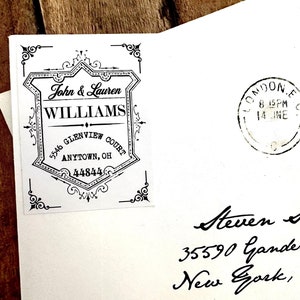 John & Lauren
WILLIAMS
5546 GLENVIEW COURT
ANYTOWN, OH
44844
LONDON, E.C
8 PM
14 JNE
Steven
35590 Gande
New York,